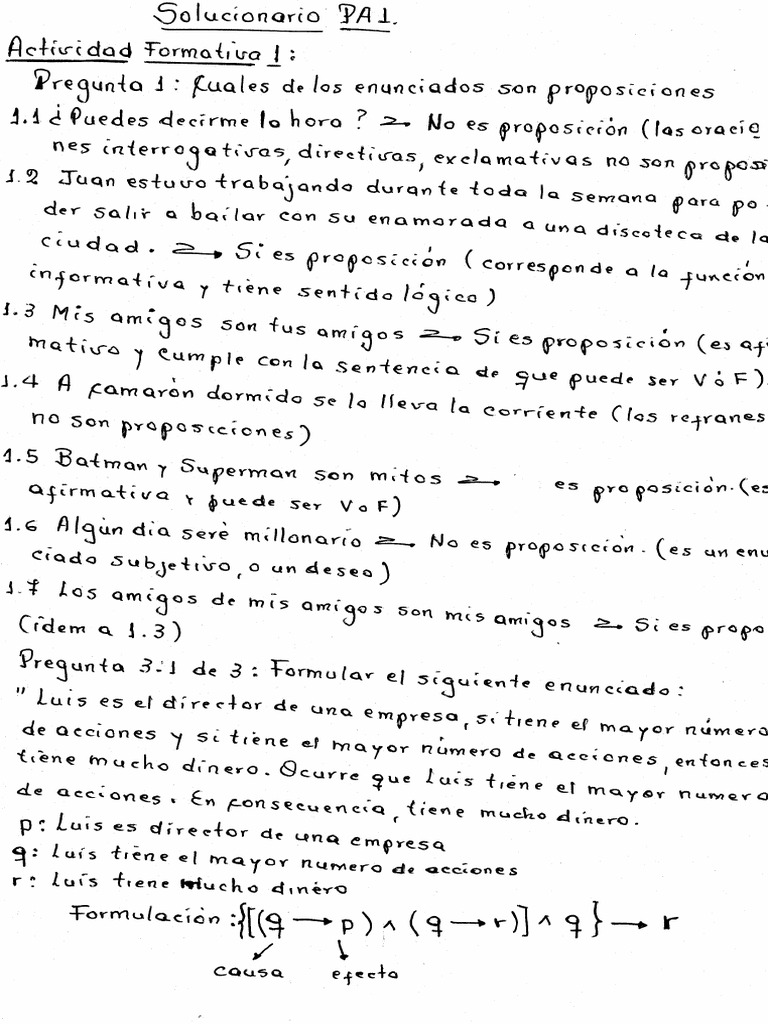 Solucionario PA1.
Actividad Formativa 1:
Pregunta 1: Cuales de los enunciados son proposiciones
1.1 ¿Puedes decirme la hora? → No es proposición (las oracio
nes interrogativas, directivas, exclamativas no son proposi
1.2 Juan estuvo trabajando durante toda la semana para po
der salir a bailar con su enamorada a una discoteca de la
ciudad. → Si es proposición (corresponde a la función
informativa y tiene sentido lógico)
1.3 Mis amigos son tus amigos → Si es proposición (es afi
mativo y cumple con la sentencia de que puede ser V ó F).
1.4 A Camarón dormido se lo lleva la corriente (los refranes
no son proposiciones)
1.5 Batman y Superman son mitos → es proposición. (es
afirmativa y puede ser V o F)
1.6 Algún dia seré millonario → No es proposición. (es un enu
ciado subjetivo, o un deseo)
1.7 Los amigos de mis amigos son mis amigos → Si es propo
(idem a 1.3)
Pregunta 3.1 de 3: Formular el siguiente enunciado:
" Luis es el director de una empresa, si tiene el mayor número
de acciones y si tiene el mayor número de acciones, entonces
tiene mucho dinero. Ocurre que Luis tiene el mayor numero
de acciones. En consecuencia, tiene mucho dinero.
p: Luis es director de una empresa
q: Luis tiene el mayor numero de acciones
r: Luis tiene mucho dinero
Formulación: {[(q → p) ∧ (q → r)] ∧ q} → r
causa efecto